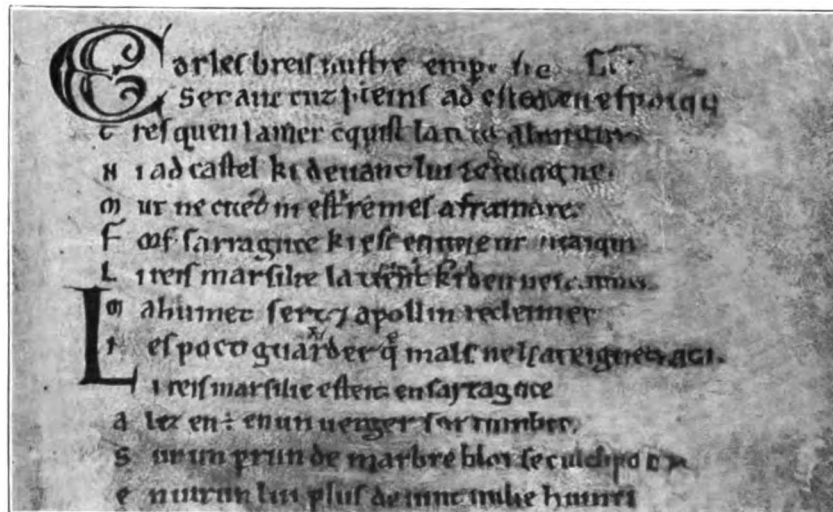 Carles li reis nostre emper
Set anz tuz pleins ad estet en espaigne
Tres quen la mer cquist la tere altaigne
N i ad castel ki devant lui remaigne.
M ur ne citet ni est remes a fraindre.
F ors sarraguce ki est en une
L i reis marsilie la tient ki deu nen aimet
M ahumet sert ⁊ apollin recleimet
N es poet guarder q̄ mals ne li ateignet. aoi.
Li reis marsilie esteit en sarraguce
A lez en ÷ en un verger suz lumbre
S ur un prun de marbre bloi se culchet
E nvirun lui plus de vint milie humes